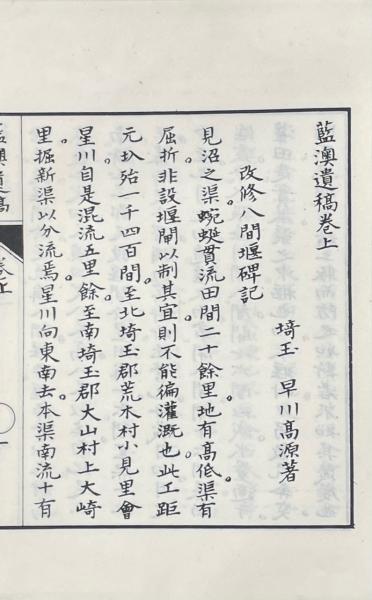 藍澳遺稿卷上
埼玉 早川髙源著
改修八間堰碑記
見沼之渠。蜿蜒貫流田間二十餘里。地有髙低。渠有
屈折。非設堰閘以制其宜。則不能徧灌溉也。此工距
元圦殆一千四百間。至北埼玉郡荒木村小見里會
星川。自是混流五里餘。至南埼玉郡大山村上大崎
里。掘新渠以分流焉。星川向東南去。本渠南流十有
藍澳遺稿
卷上
一